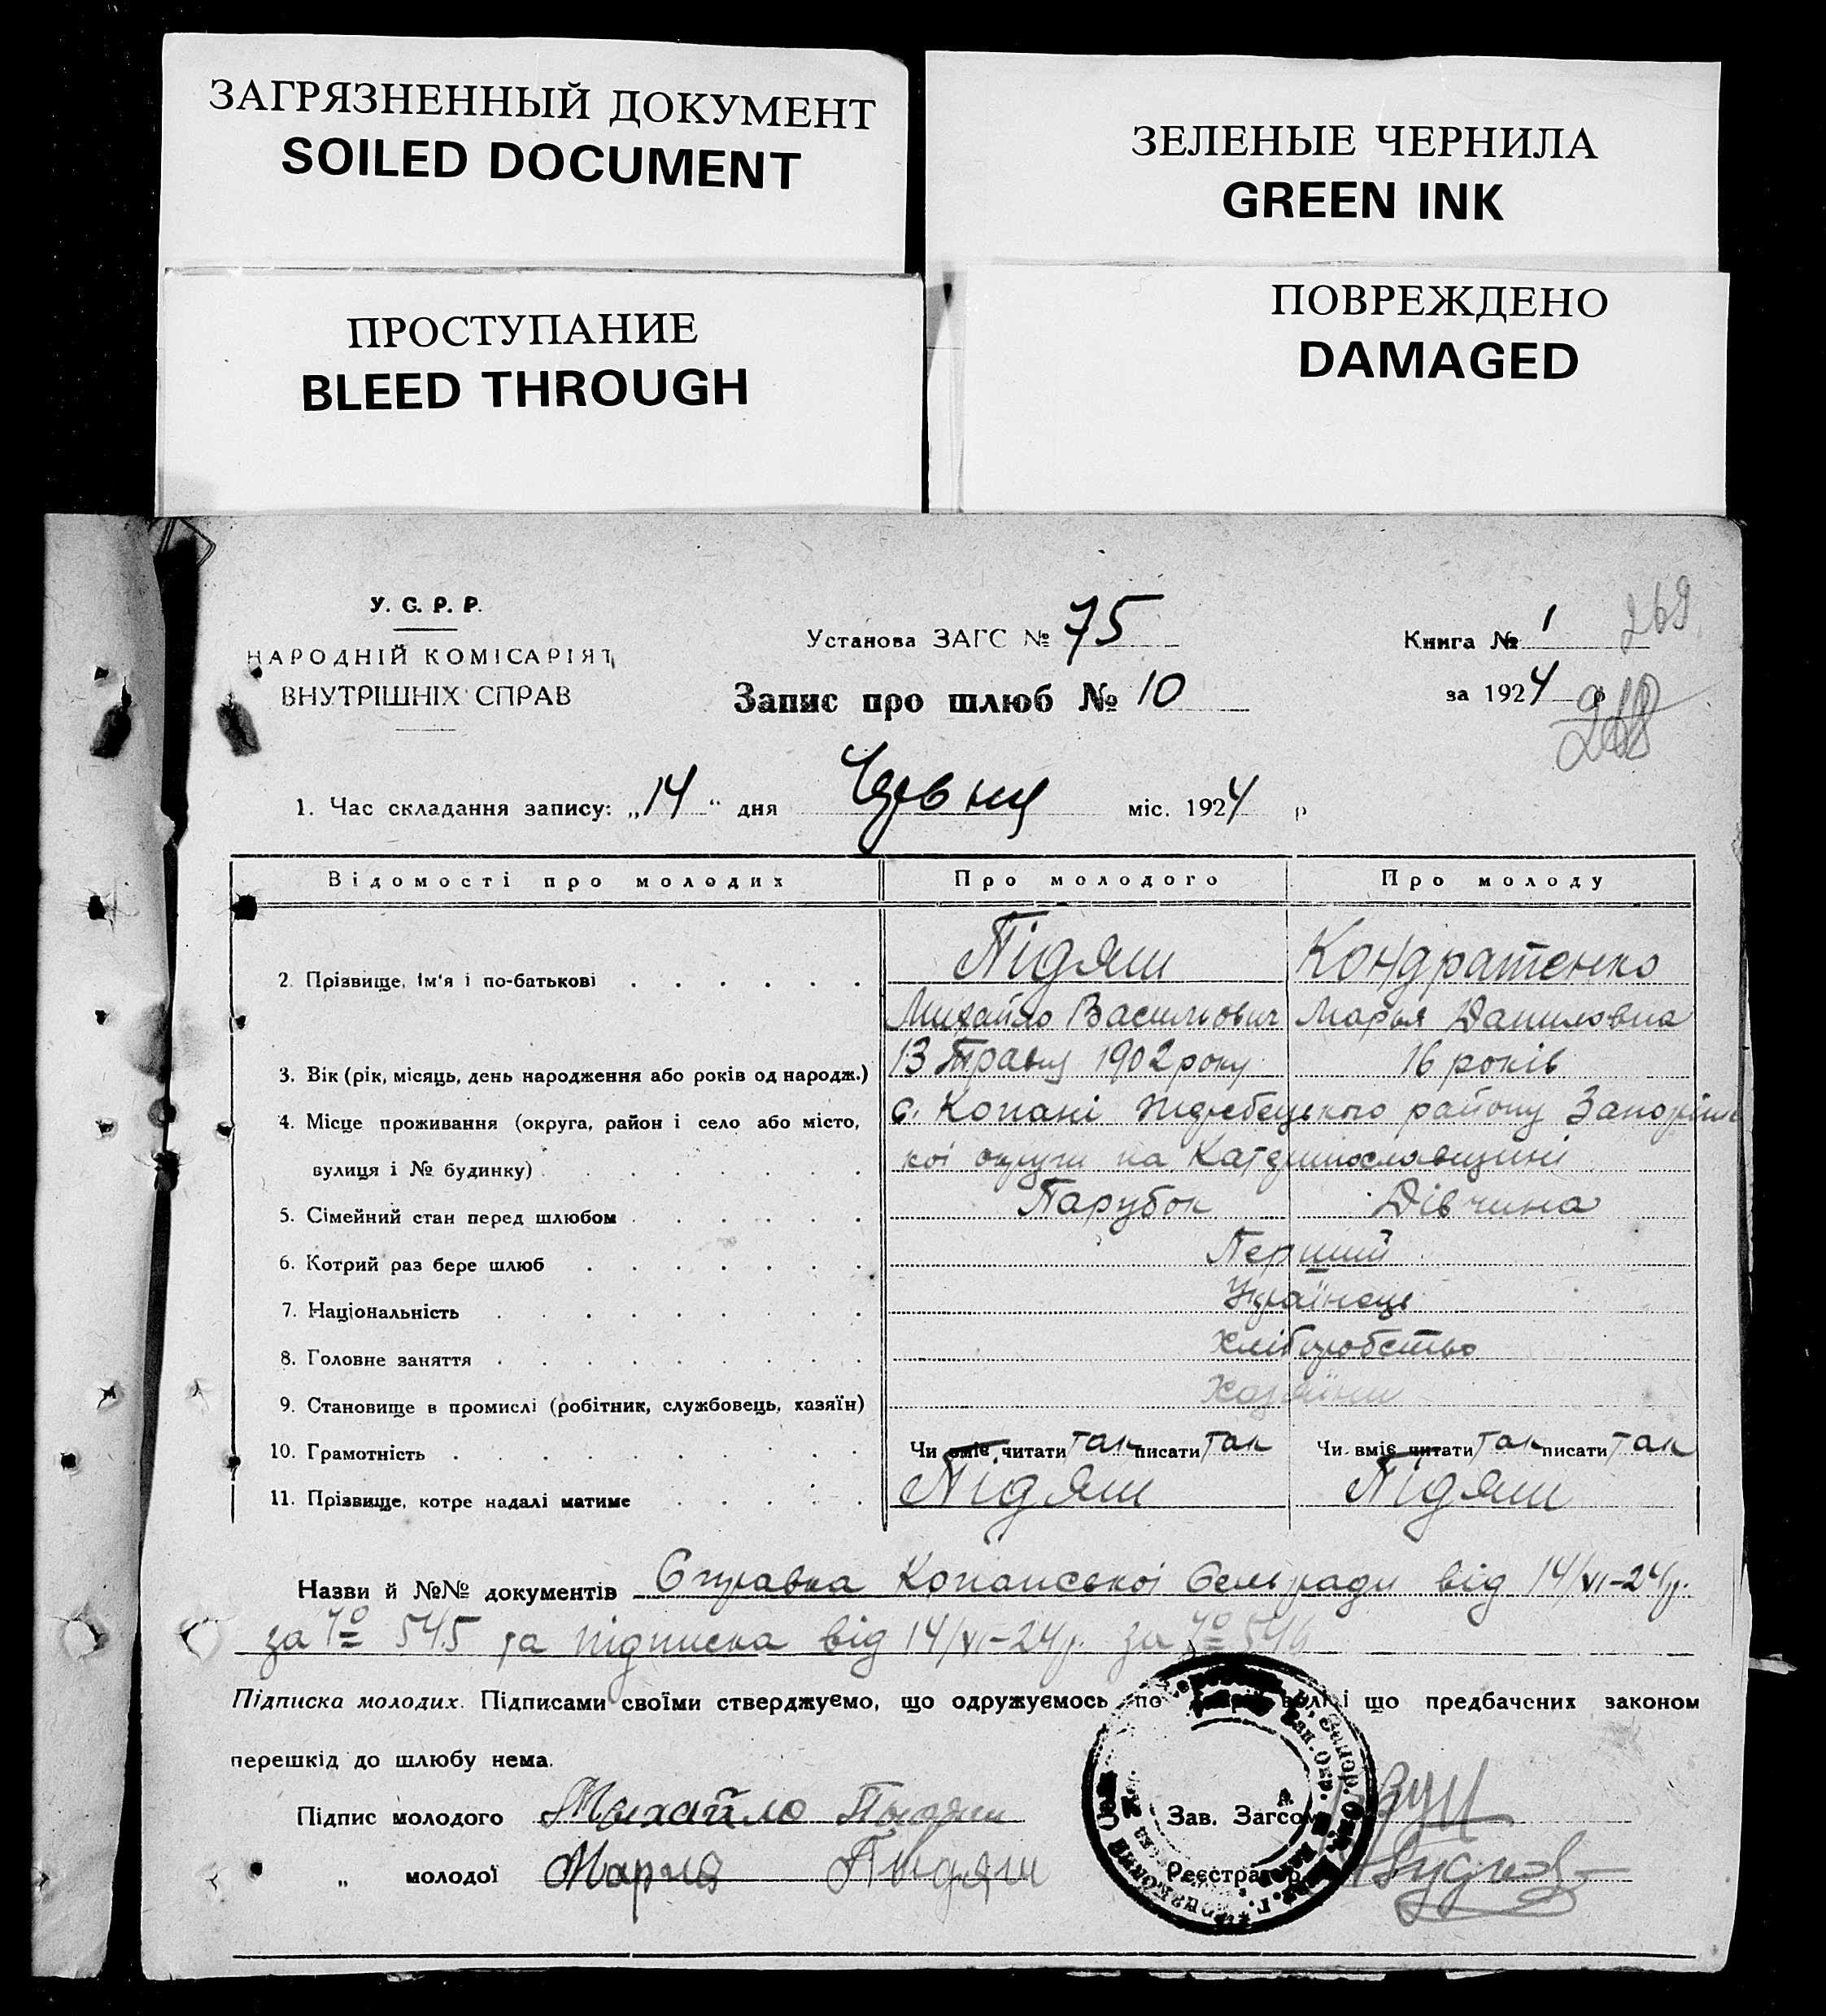 ЗАГРЯЗНЕННЫЙ ДОКУМЕНТ
SOILED DOCUMENT
ЗЕЛЕНЫЕ ЧЕРНИЛА
GREEN INK
ПРОСТУПАНИЕ
BLEED THROUGH
ПОВРЕЖДЕНО
DAMAGED
У. С. Р. Р.
НАРОДНІЙ КОМІСАРІЯТ
ВНУТРІШНІХ СПРАВ
Установа ЗАГС № 75
Запис про шлюб № 10
Книга № 1
269
за 1924 р
268
1. Час складання запису: „14“ дня Червня міс. 1924 р
Відомості про молодих Про молодого Про молоду
Підяш Кондратенко
2. Прізвище, ім'я і по-батькові
Михайло Васильович Марья Даниловна
3. Вік (рік, місяць, день народження або років од народж.) 13 Травня 1902 року 16 років
4. Місце проживання (округа, район і село або місто, с. Копані Жеребецького району Запоріжс
вулиця і № будинку) кої округи на Катеринославщині
5. Сімейний стан перед шлюбом Парубок Дівчина
6. Котрий раз бере шлюб Перший
7. Національність Українець
8. Головне заняття Хліборобство
9. Становище в промислі (робітник, службовець, хазяїн) Хазяїни
10. Грамотність Чи вміє читати так писати так Чи вміє читати так писати так
11. Прізвище, котре надалі матиме Підяш Підяш
Назви й №№ документів Справка Копанської Сельради від 14/VI-24р.
за № 545 та підписка від 14/VI-24р. за № 546
Підписка молодих. Підписами своїми стверджуємо, що одружуємось по волі і що предбачених законом
перешкід до шлюбу нема.
Підпис молодого Михайло Пыдяш
Зав. Загсом
„ молодої Мария Пыдяш
Реєстратор